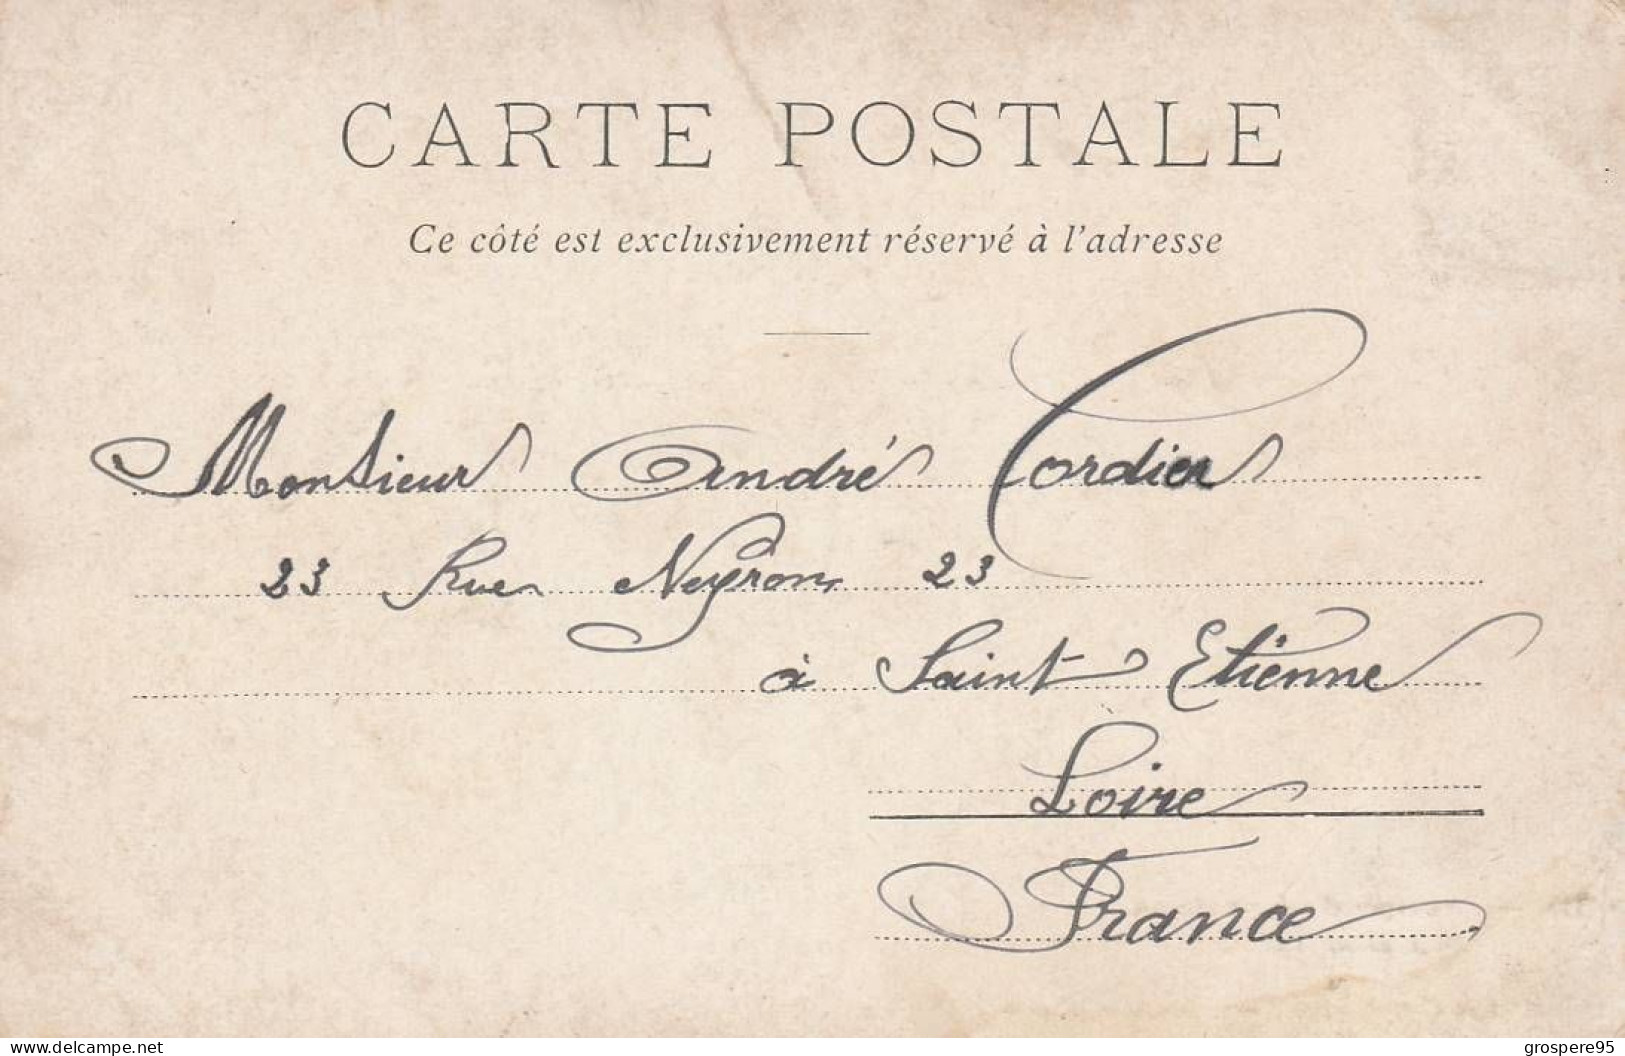 CARTE POSTALE
Ce côté est exclusivement réservé à l'adresse
Monsieur André Cordier
23 Rue Neyron 23
à Saint Etienne
Loire
France
www.delcampe.net
grospere95